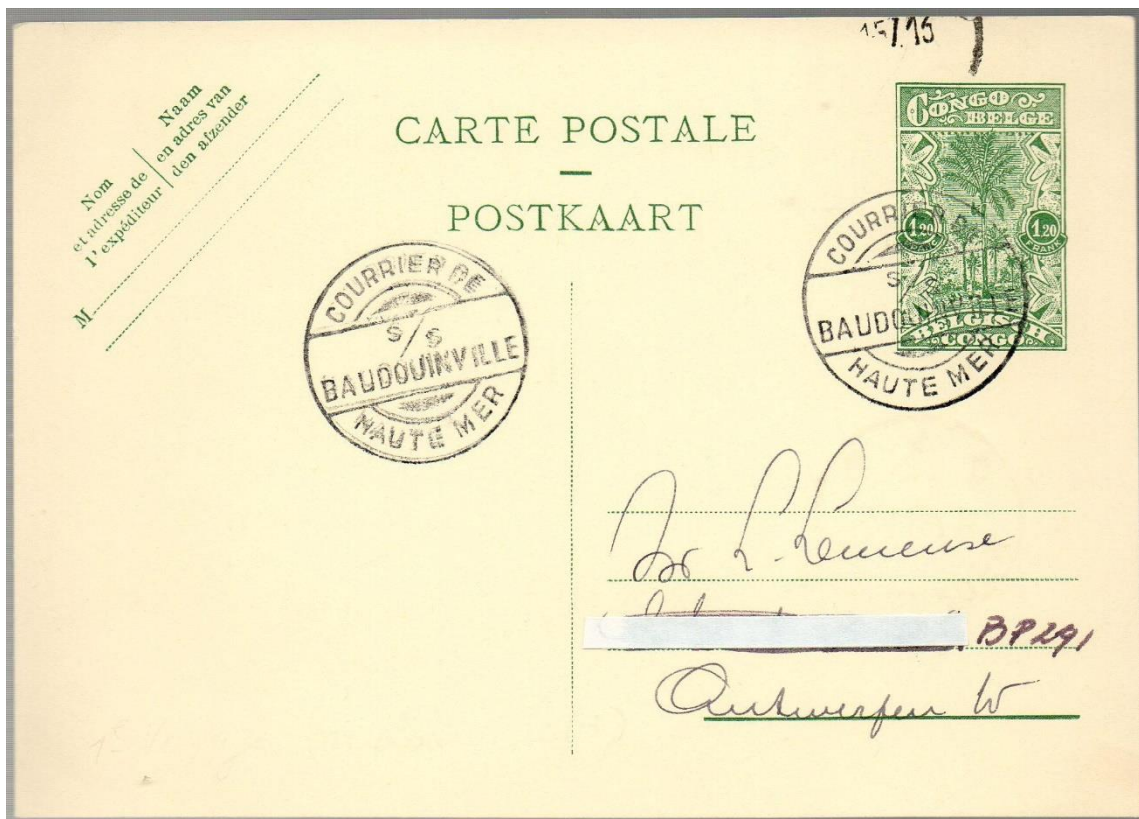 15/15
Nom
et adresse de
l'expéditeur
Naam
en adres van
den afzender
M
CARTE POSTALE
POSTKAART
CONGO
BELGE
1.20
1.20
FRANK
BELGISCH
CONGO
COURRIER DE
S/S
BAUDOUINVILLE
HAUTE MER
COURRIER
S/S
BAUDOUINVILLE
HAUTE MER
L.
BP291
Antwerpen W